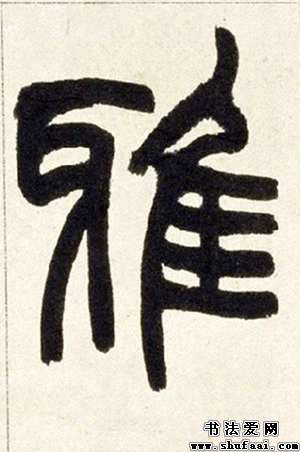 雅
书法爱网
www.shufaai.com